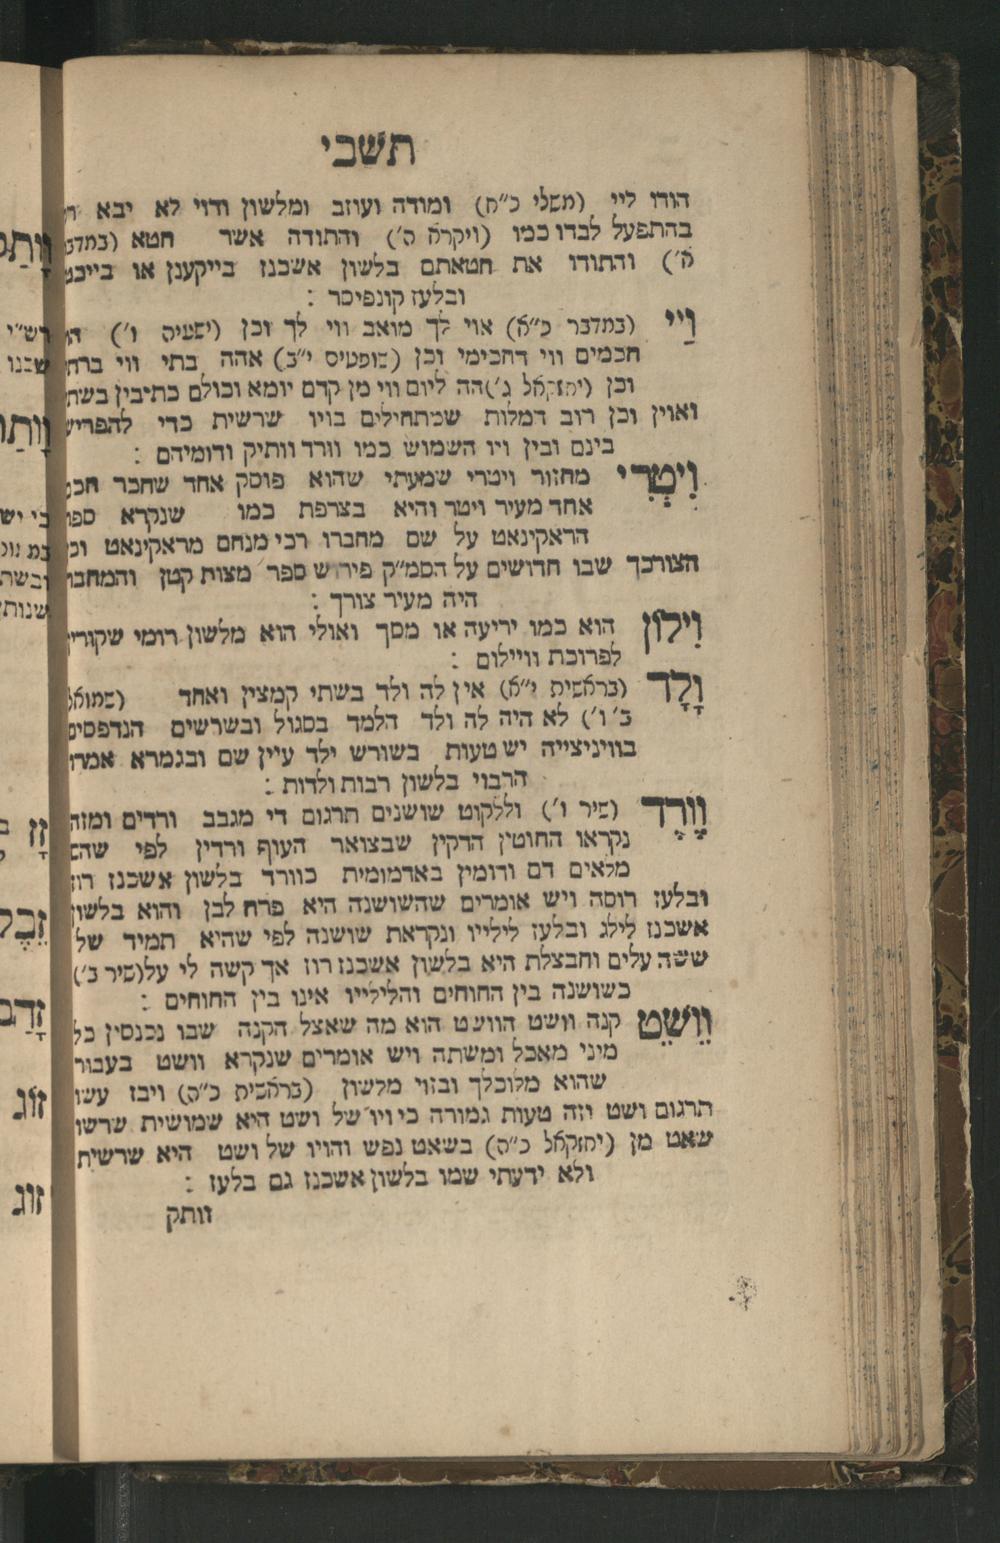 תשבי
הודו ליי (משלי כ״ח) ומודה ועוזב ומלשון ודוי לא יבא
בהתפעל לבדו כמו (ויקרא ה׳) והתודה אשר חטא (במדבר
ה׳) והתודו את חטאתם בלשון אשכנז בייקענן או
ובלעז קונפיסר :
וַיי (במדבר כ״א) אוי לך מואב ווי לך וכן (ישעיה ו׳)
חכמים ווי דחכימי וכן (שופטים י״ב) אהה בתי ווי
וכן (יחזקאל ג׳) הה ליום ווי מן קדם יומא וכולם כתיבין בשתי
ואוין וכן רוב המלות שמתחילים בויו שרשית כדי להפריש
בינם ובין ויו השמוש כמו וורד וותיק ודומיהם :
וִיטְרִי מחזור ויטרי שמעתי שהוא פוסק אחד שחבר חכם
אחד מעיר ויטר והיא בצרפת כמו שנקרא ספר
הדאקינאט על שם מחברו רבי מנחם מראקינאט וכן
הצורכך שבו חדושים על הסמ״ק פירוש ספר מצות קטן והמחבר
היה מעיר צורך :
וִילוֹן הוא כמו יריעה או מסך ואולי הוא מלשון רומי שקורין
לפרוכת וויילום :
וָלָד (בראשית י״א) אין לה ולד בשתי קמצין ואחד (שמואל
ב׳ ו׳) לא היה לה ולד הלמד בסגול ובשרשים הנדפסים
בוויניצייה יש טעות בשורש ילד עיין שם ובגמרא אמרו
הרבוי בלשון רבות ולדות :
וֶורֶד (שיר ו׳) וללקוט שושנים תרגום די מגבב ורדים ומזה
נקראו החוטין הדקין שבצואר העוף ורדין לפי שהם
מלאים דם ודומין באדמומית כוורד בלשון אשכנז רוז
ובלעז רוסה ויש אומרים שהשושנה היא פרח לבן והוא בלשון
אשכנז לילג ובלעז ליליו ונקראת שושנה לפי שהיא תמיד של
ששה עלים וחבצלת היא בלשון אשכנז רוז אך קשה לי על (שיר ב׳)
כשושנה בין החוחים והלילייו אינו בין החוחים :
וֵושֵׁט קנה וושט הוושט הוא מה שאצל הקנה שבו נכנסין כל
מיני מאכל ומשתה ויש אומרים שנקרא וושט בעבור
שהוא מלוכלך ובזוי מלשון (בראשית כ״ה) ויבז עשו
תרגום ושט וזה טעות גמורה כי ויו של ושט היא שמושית שרשו
שאט מן (יחזקאל כ״ה) בשאט נפש והויו של ושט היא שרשית
ולא ידעתי שמו בלשון אשכנז גם בלעז :
וותק